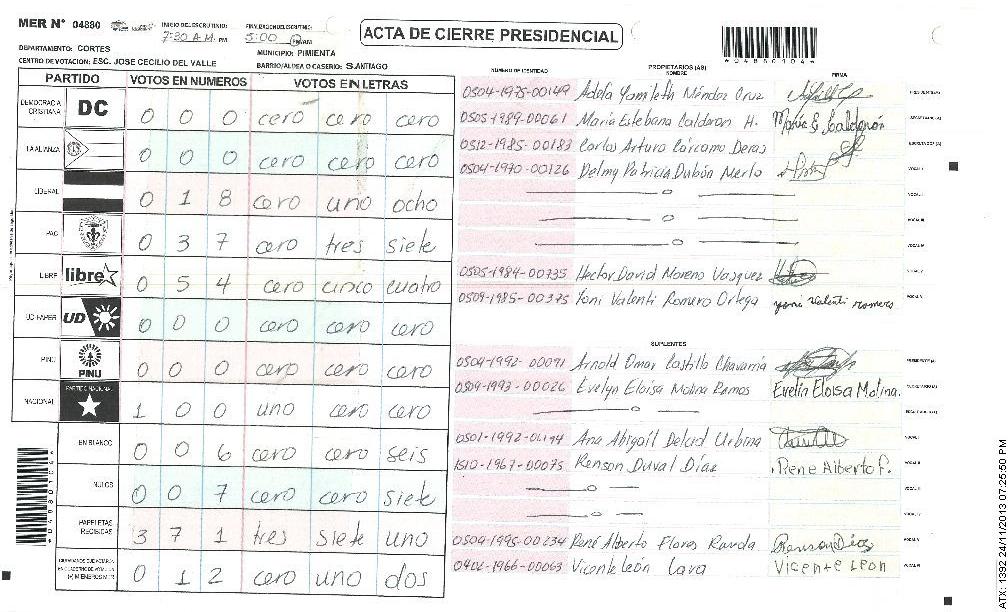 MER N° 04880
INICIO DEL ESCRUTINIO: 7:30 A.M. PM
FINALIZACION DEL ESCRUTINIO: 5:00 PM AM
ACTA DE CIERRE PRESIDENCIAL
*04880104*
DEPARTAMENTO: CORTES
MUNICIPIO: PIMIENTA
CENTRO DE VOTACION: ESC. JOSE CECILIO DEL VALLE
BARRIO/ALDEA O CASERIO: SANTIAGO
PARTIDO VOTOS EN NUMEROS VOTOS EN LETRAS
DEMOCRACIA CRISTIANA DC 0 0 0 cero cero cero
LA ALIANZA 0 0 0 cero cero cero
LIBERAL 0 1 8 cero uno ocho
PAC 0 3 7 cero tres siete
LIBRE libre 0 5 4 cero cinco cuatro
UD-FAPER UD 0 0 0 cero cero cero
PINU PINU 0 0 0 cero cero cero
NACIONAL PARTIDO NACIONAL 1 0 0 uno cero cero
EN BLANCO 0 0 6 cero cero seis
NULOS 0 0 7 cero cero siete
PAPELETAS RECIBIDAS 3 7 1 tres siete uno
CIUDADANOS QUE VOTARON EN CUADERNO DE VOTACION (+) MIEMBROS MER 0 1 2 cero uno dos
*04880104*
NUMERO DE IDENTIDAD PROPIETARIOS (AS) NOMBRE FIRMA
0504-1975-00149 Adela Yamileth Méndez Cruz PRESIDENTE(A)
0505-1989-00061 María Estebana Calderon H. María E Calderón SECRETARIO(A)
0512-1985-00183 Carlos Arturo Cárcamo Deras ESCRUTADOR(A)
0504-1970-00126 Delmy Patricia Dubón Merlo VOCAL I
VOCAL II
VOCAL III
VOCAL IV
0505-1984-00735 Hector David Moreno Vasquez VOCAL V
0509-1985-00375 Yoni Valenti Romero Ortega yoni valenti romero
SUPLENTES
0504-1992-00091 Arnold Omar Castillo Chavarria PRESIDENTE(A)
0509-1993-00026 Evelyn Eloisa Molina Ramos Evelin Eloisa Molina. SECRETARIO(A)
ESCRUTADOR(A)
Ana Abigail Delcid Urbina VOCAL I
1510-1967-00075 Renson Duval Díaz Rene Alberto F. VOCAL II
VOCAL III
VOCAL IV
0504-1995-00234 René Alberto Flores Renson Díaz VOCAL V
Vicente León Vicente Leon
ATX: 1392 24/11/2013 07:25:50 PM